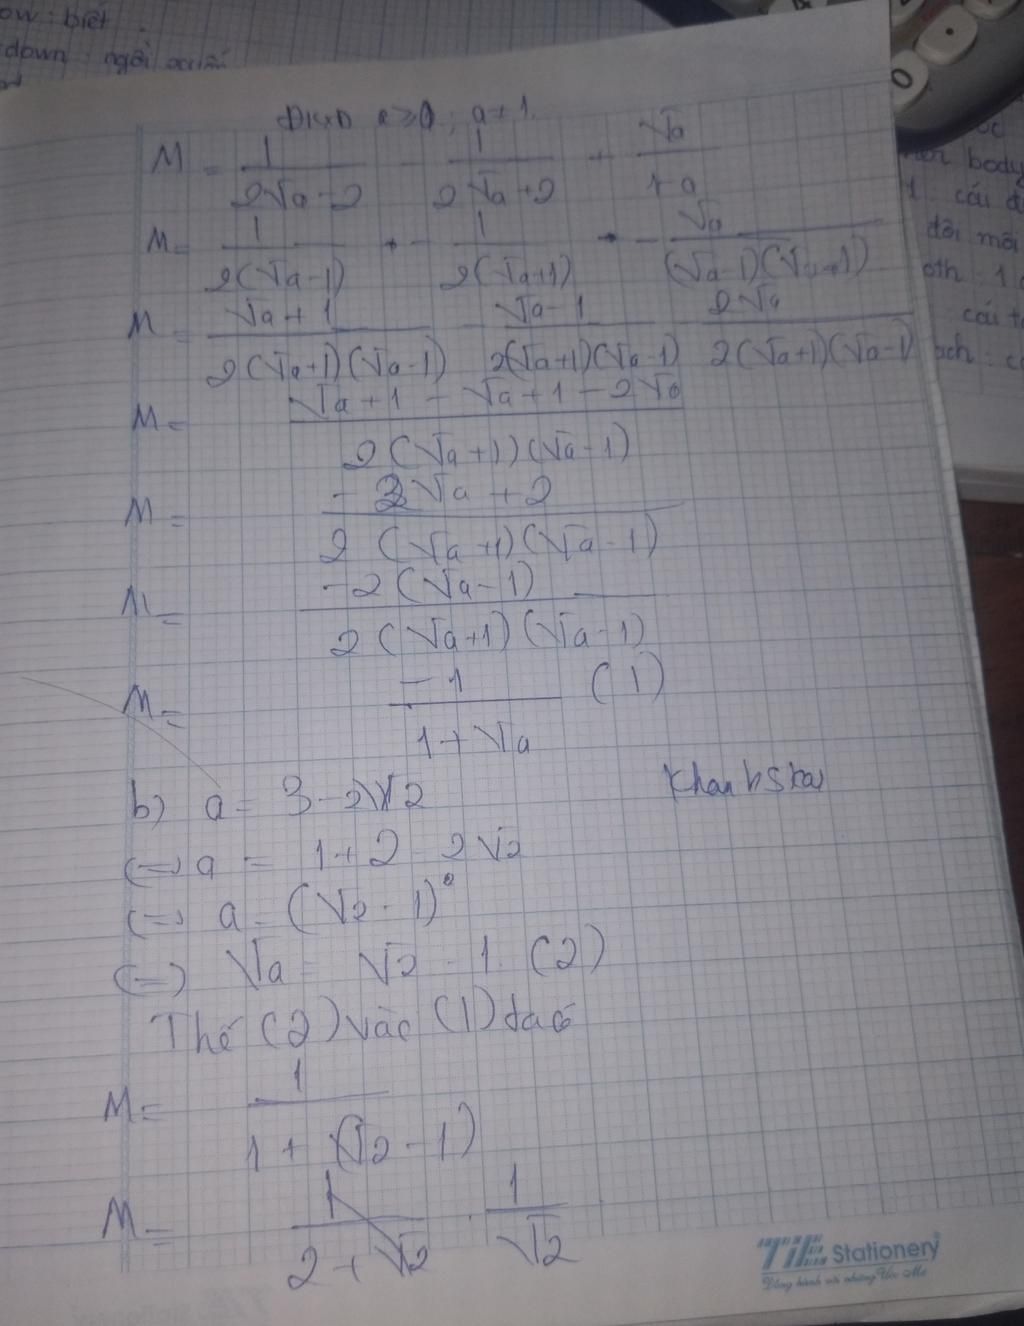 ow: biết
down: ngồi xuống
ĐKXĐ a ≥ 0; a ≠ 1.
M = 1/(2√a - 2) - 1/(2√a + 2) + √a/(1 - a)
M = 1/(2(√a - 1)) - 1/(2(√a + 1)) - √a/((√a - 1)(√a + 1))
M = (√a + 1)/(2(√a + 1)(√a - 1)) - (√a - 1)/(2(√a + 1)(√a - 1)) 2√a/(2(√a + 1)(√a - 1))
M = (√a + 1 - √a + 1 - 2√a)/(2(√a + 1)(√a - 1))
M = (-2√a + 2)/(2(√a + 1)(√a - 1))
M = (-2(√a - 1))/(2(√a + 1)(√a - 1))
M = -1/(1 + √a) (1)
b) a = 3 - 2√2
(=) a = 1 + 2 - 2√2
(=) a = (√2 - 1)²
(=) √a = √2 - 1. (2)
Thế (2) vào (1) ta có
M = 1/(1 + (√2 - 1))
M = 1/(2 + √2) . 1/√2
body
1 cái
đôi môi
cái
TiE Stationery